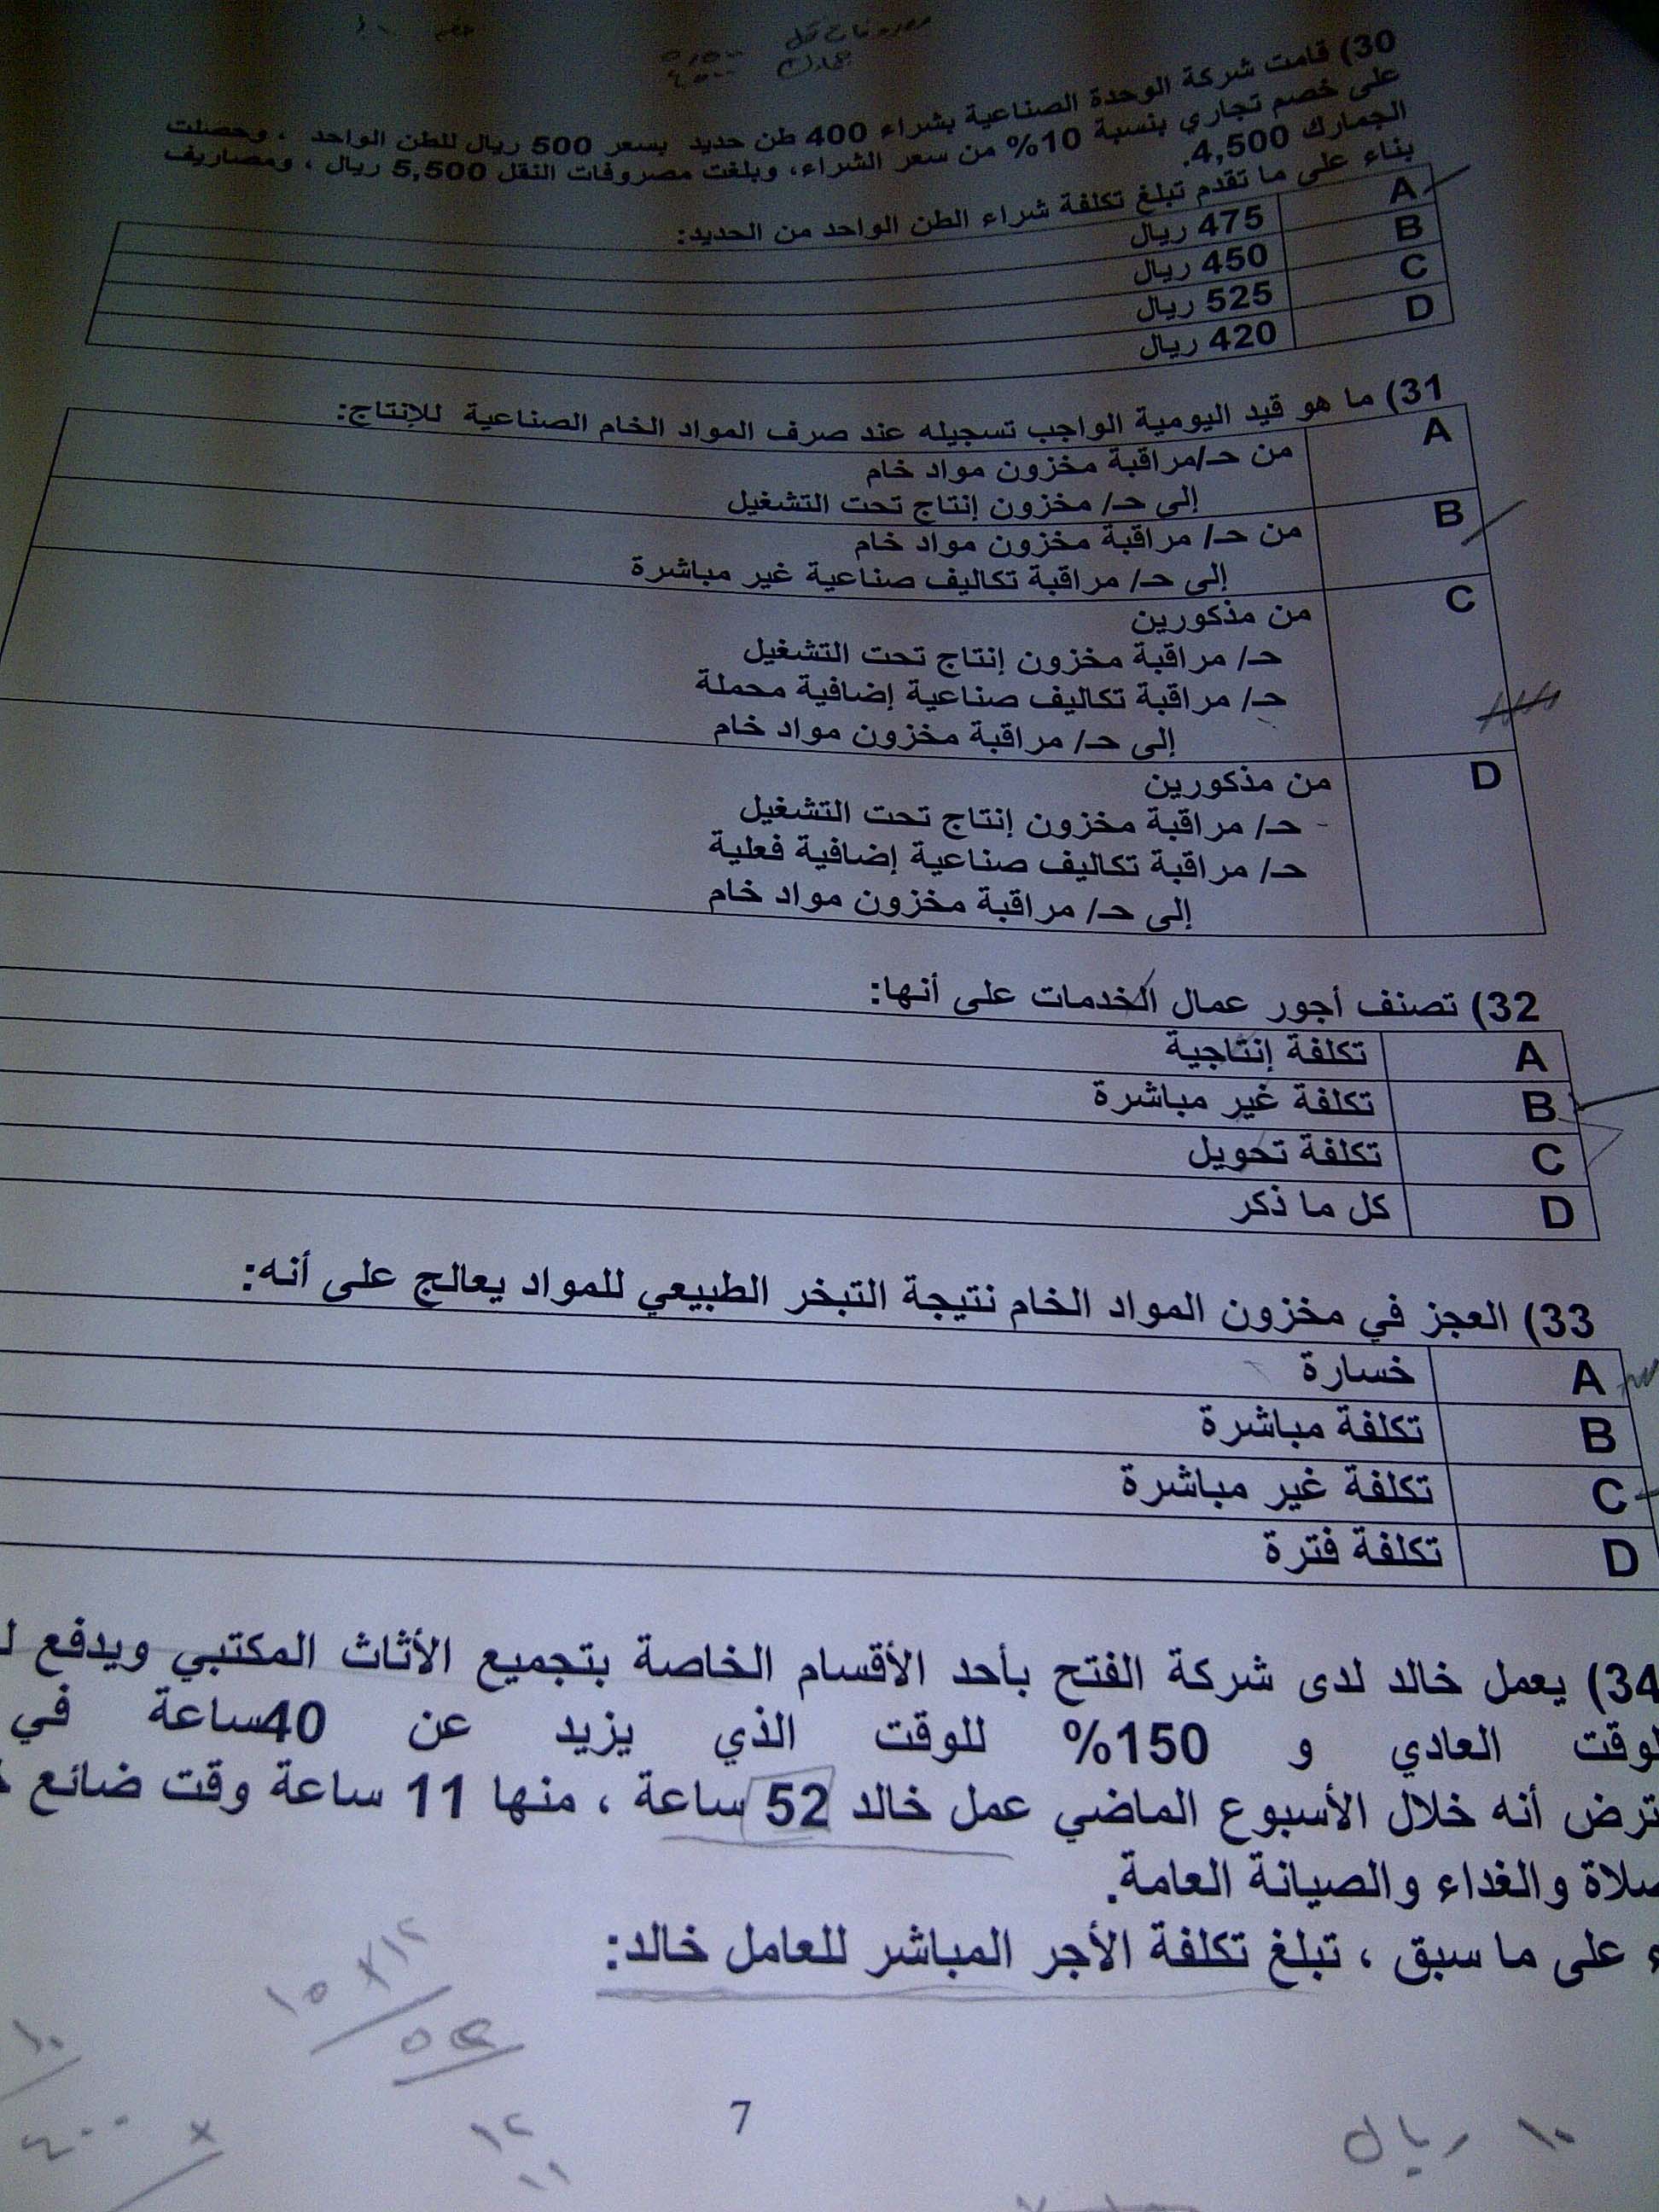 مصروفات نقل ٥,٥٠٠
جمارك ٤٥٠٠
30) قامت شركة الوحدة الصناعية بشراء 400 طن حديد بسعر 500 ريال للطن الواحد ، وحصلت
على خصم تجاري بنسبة 10% من سعر الشراء، وبلغت مصروفات النقل 5,500 ريال ، ومصاريف
الجمارك 4,500.
بناء على ما تقدم تبلغ تكلفة شراء الطن الواحد من الحديد:
A 475 ريال
B 450 ريال
C 525 ريال
D 420 ريال
31) ما هو قيد اليومية الواجب تسجيله عند صرف المواد الخام الصناعية للإنتاج:
A من حـ/مراقبة مخزون مواد خام
إلى حـ/ مخزون إنتاج تحت التشغيل
B من حـ/ مراقبة مخزون مواد خام
إلى حـ/ مراقبة تكاليف صناعية غير مباشرة
C من مذكورين
حـ/ مراقبة مخزون إنتاج تحت التشغيل
حـ/ مراقبة تكاليف صناعية إضافية محملة
إلى حـ/ مراقبة مخزون مواد خام
D من مذكورين
حـ/ مراقبة مخزون إنتاج تحت التشغيل
حـ/ مراقبة تكاليف صناعية إضافية فعلية
إلى حـ/ مراقبة مخزون مواد خام
32) تصنف أجور عمال الخدمات على أنها:
A تكلفة إنتاجية
B تكلفة غير مباشرة
C تكلفة تحويل
D كل ما ذكر
33) العجز في مخزون المواد الخام نتيجة التبخر الطبيعي للمواد يعالج على أنه:
A خسارة
B تكلفة مباشرة
C تكلفة غير مباشرة
D تكلفة فترة
34) يعمل خالد لدى شركة الفتح بأحد الأقسام الخاصة بتجميع الأثاث المكتبي ويدفع
العادي و 150% للوقت الذي يزيد عن 40ساعة في
أنه خلال الأسبوع الماضي عمل خالد 52 ساعة ، منها 11 ساعة وقت ضائع
والغداء والصيانة العامة.
على ما سبق ، تبلغ تكلفة الأجر المباشر للعامل خالد:
١٥ × ١٢
١٠
٤٠٠
×
١٢
١١
7
١٠ ريال